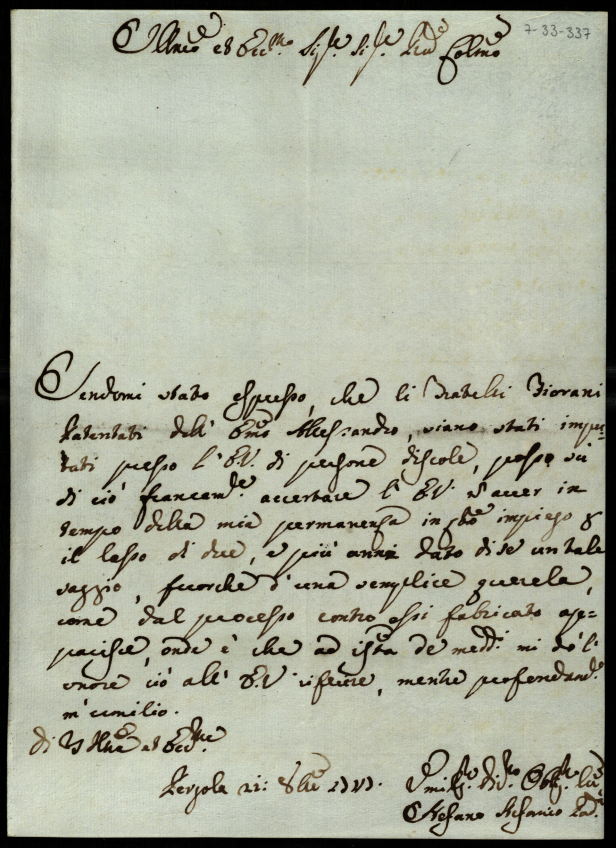 7-33-337
Illmo ed Eccmo Sigre Sigre Colmo
Sendomi stato espresso, che li Fratelli Fiorani
Patentati dell' Emo Alessandro, siano stati impu=
tati presso l' E.V. di persone discole, posso sù
di ciò francamte accertare l' E.V. d'aver in
tempo della mia permanenza in impiego p
il lasso di due, e più anni dato di se un tale
saggio, fuorche d'una semplice querela,
come dal processo contro essi fabricato ap=
parisce, onde è che ad ista de medi mi dò l'
onore ciò all' E.V. riferire, mentre profondamte
m'umilio.
di V. Illma ed Eccma
Pergola 22: 8bre
Umilmo Divmo Obbmo
Stefano Stefanio